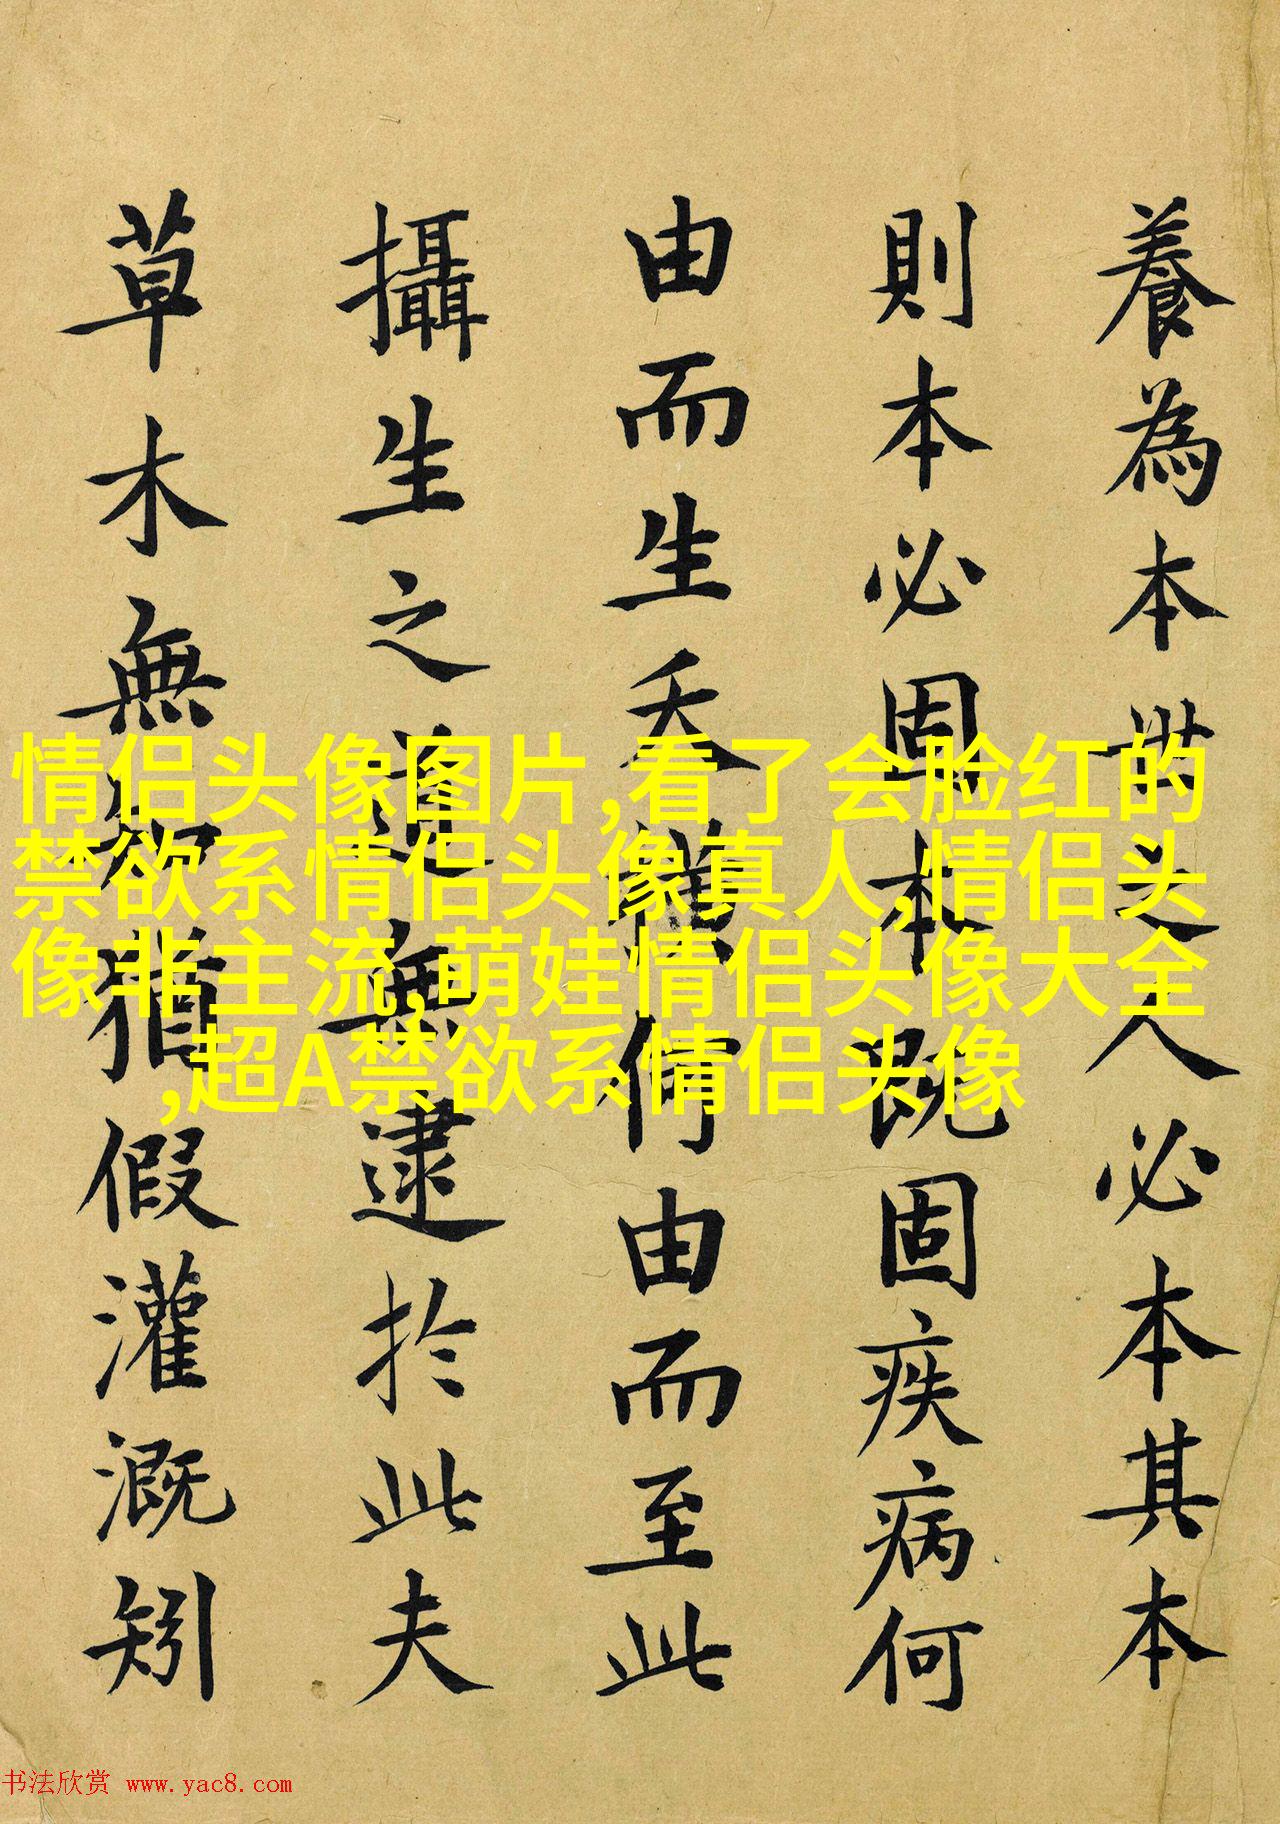 養為本世之人必本其本
則本必固本既固疾病何
由而生夭橫何由而至此
攝生之道無逮於此夫
草木無知猶假灌溉矧
情侣头像图片,看了会脸红的
禁欲系情侣头像真人,情侣头
像非主流,萌娃情侣头像大全
,超A禁欲系情侣头像
书法欣赏 www.yac8.com